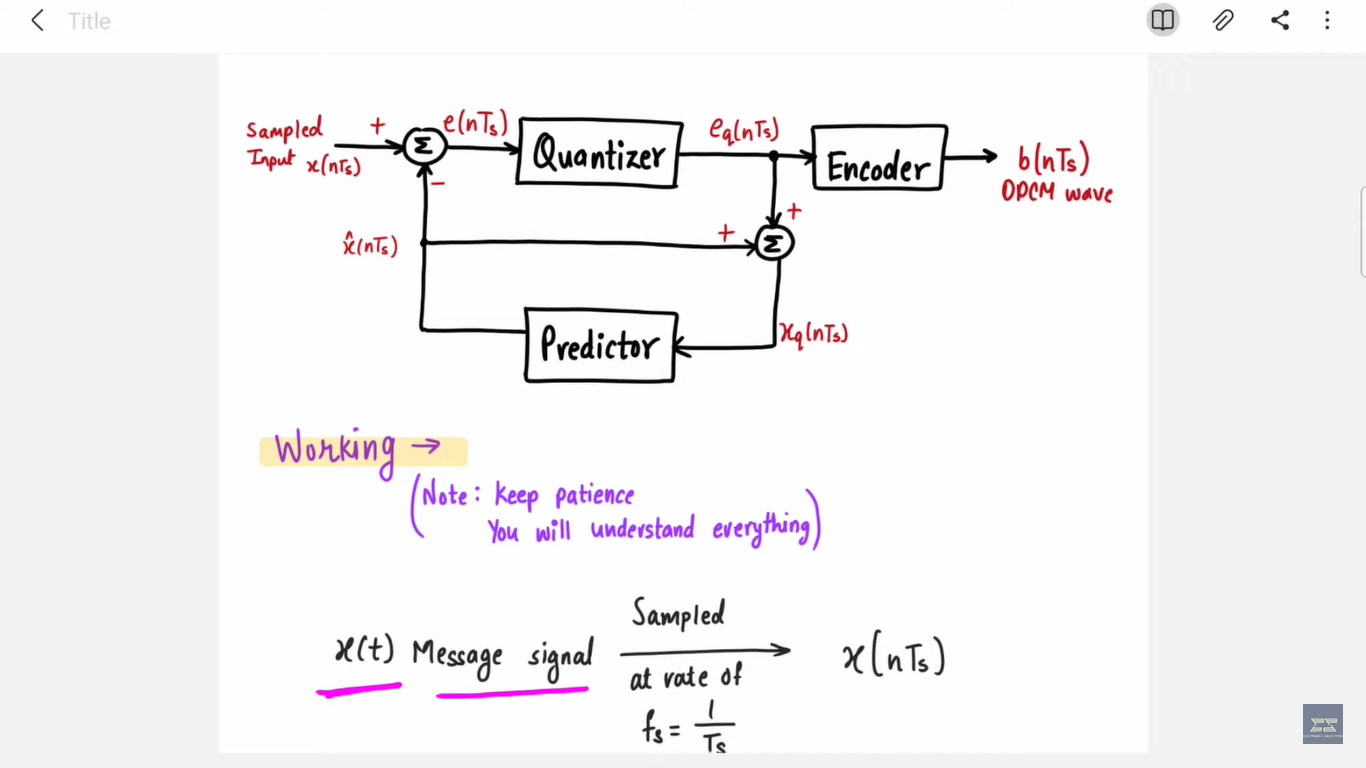 Title
Sampled
Input x(nTs)
+
Σ
e(nTs)
Quantizer
eq(nTs)
Encoder
b(nTs)
DPCM wave
−
x̂(nTs)
+
+
Σ
Predictor
xq(nTs)
Working →
(Note: Keep patience
You will understand everything)
x(t) Message signal
Sampled
at rate of
fs = 1/Ts
x(nTs)